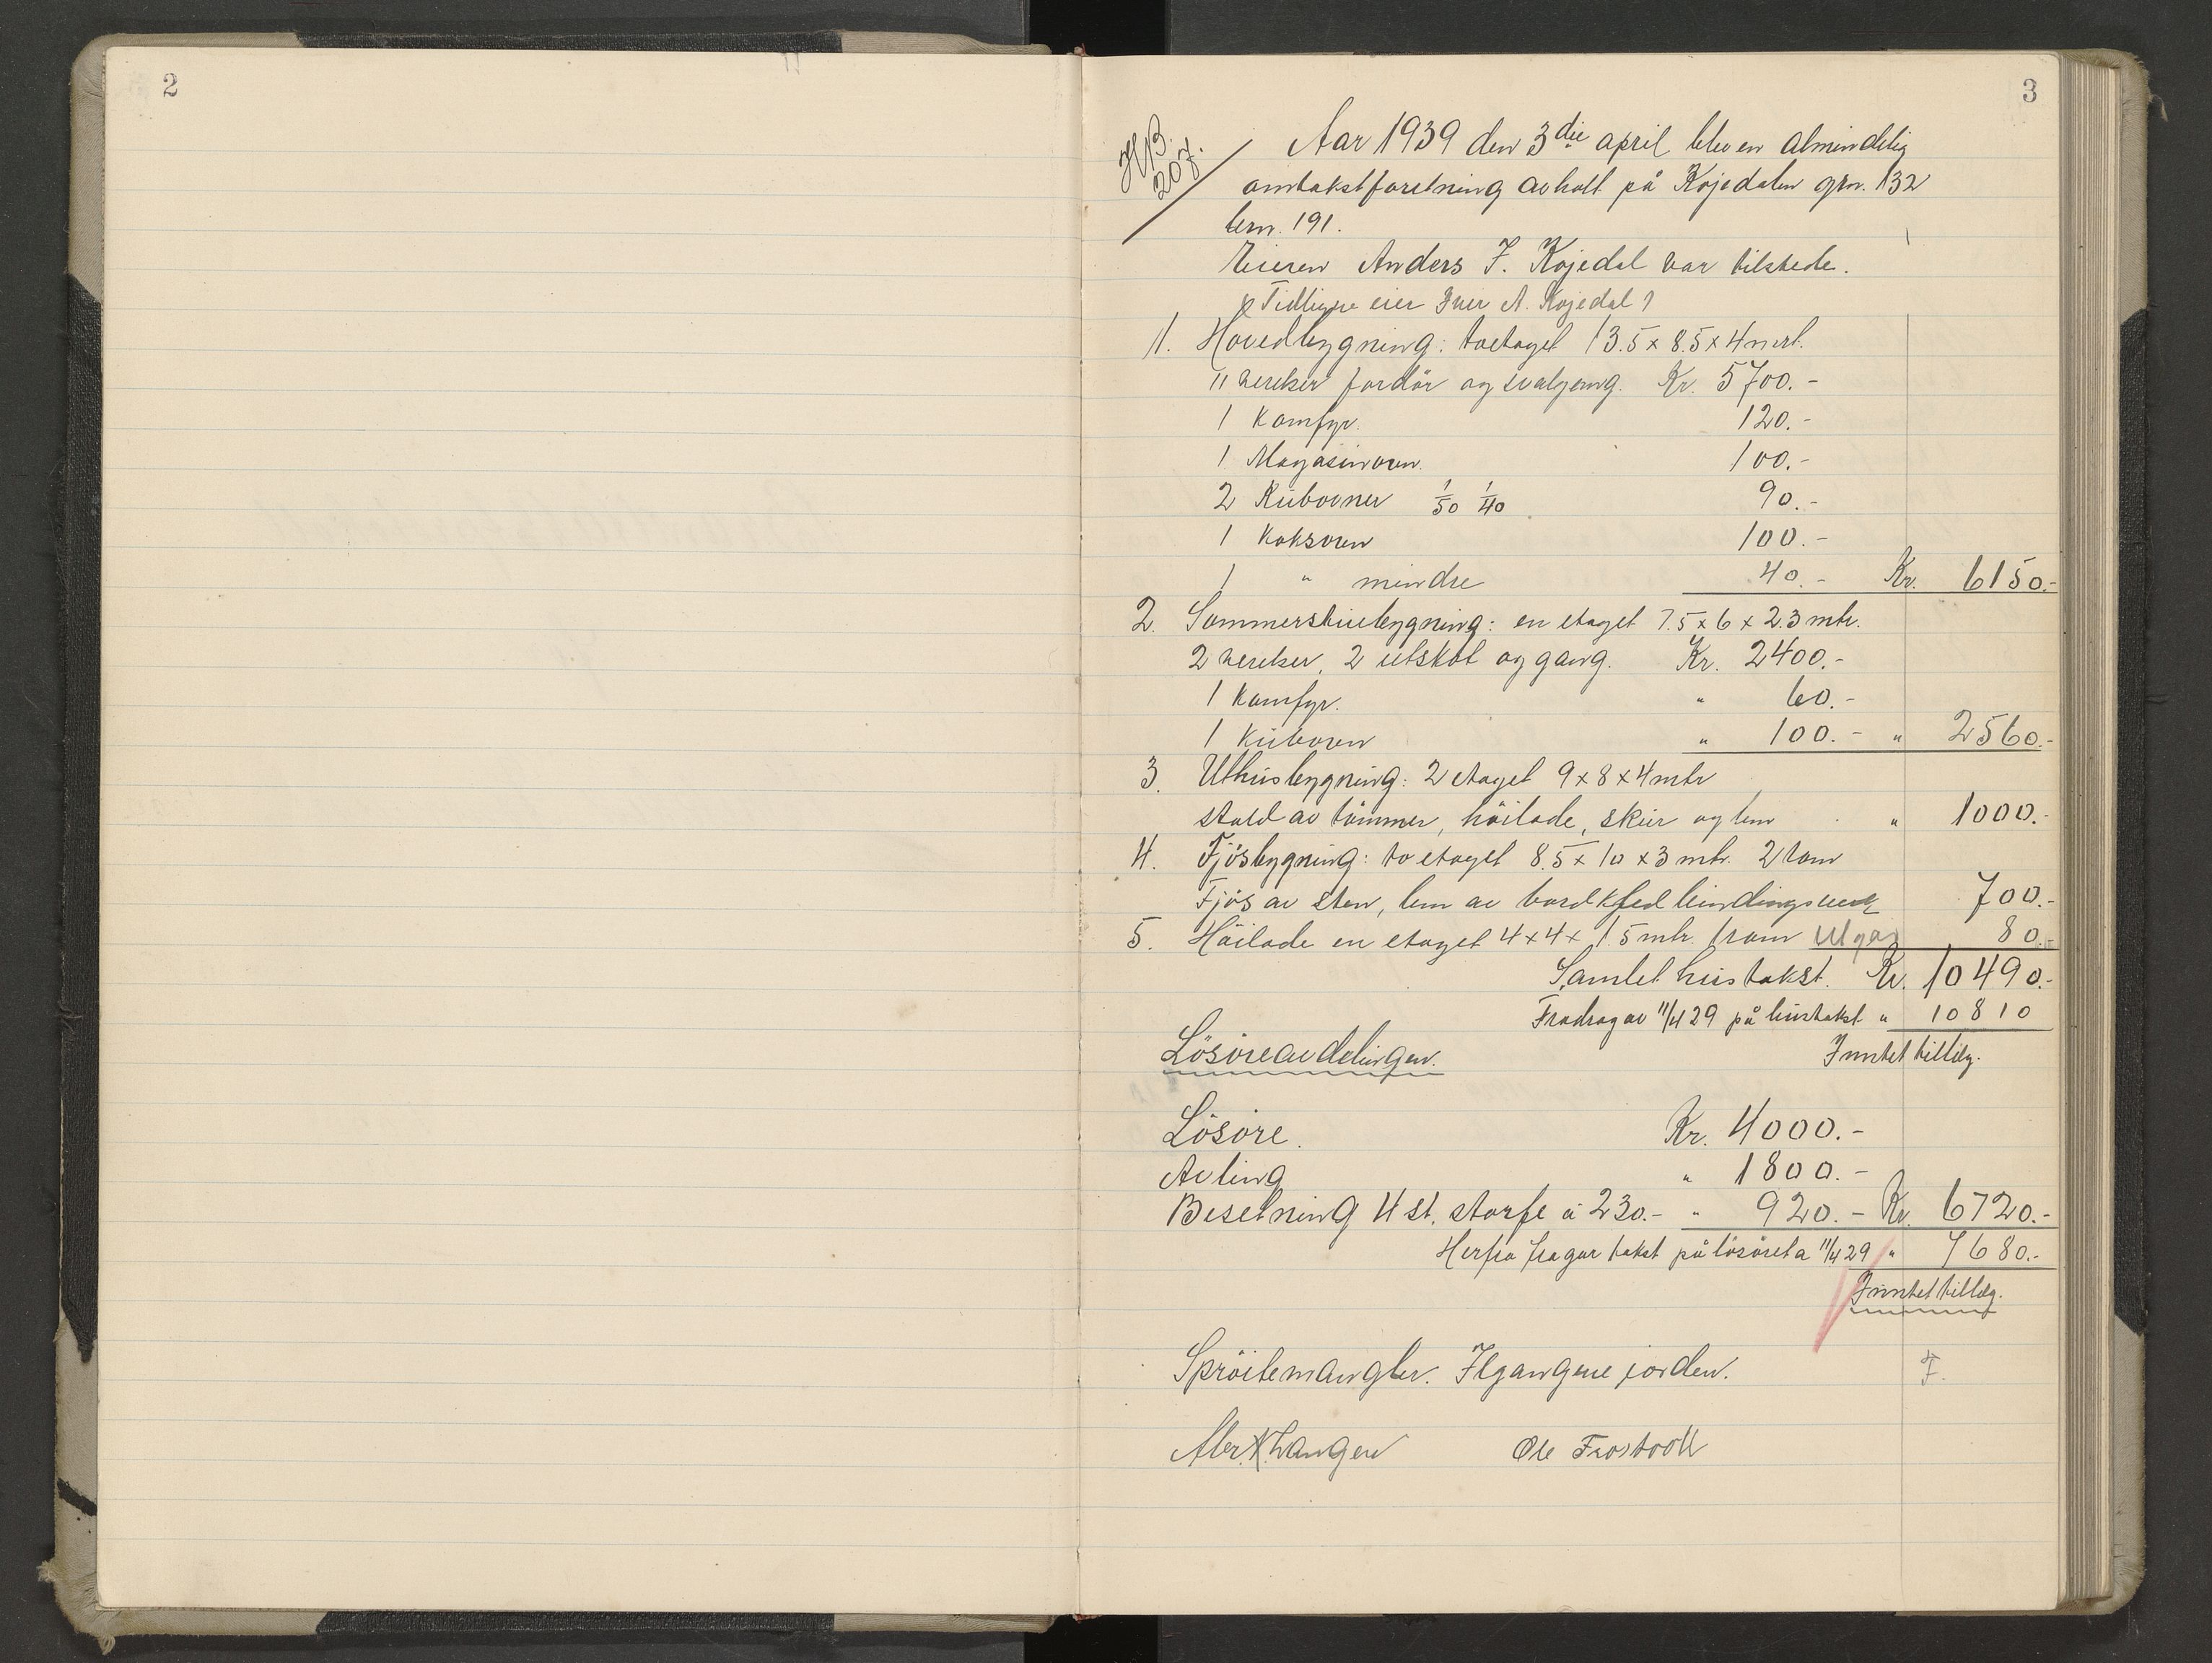 2
3
HB.
207.
Aar 1939 den 3die april blev en almindelig
omtakstforetning avholt på Kojedalen grn. 132
brn. 191.
Eieren Anders J. Kojedal var tilstede.
Tidligere eier Iver A. Kojedal
1. Hovedbygning: toetaget 13.5 x 8.5 x 4 mtr.
11 verelser fordör og svalgang. Kr. 5700.-
1 Komfyr. 120.-
1 Magasinovn. 100.-
2 Kubovner 1/50 1/40 90.-
1 Koksovn 100.-
1 " mindre 40.- Kr. 6150.-
2. Sommerstuebygning: en etaget 7.5 x 6 x 2.3 mtr.
2 verelser, 2 utskot og gang. Kr. 2400.-
1 Komfyr. " 60.-
1 Kubovn " 100.- " 2560.-
3. Uthusbygning: 2 etaget 9 x 8 x 4 mtr
stald av tömmer, höilade, skur og lem " 1000.-
4. Fjösbygning: to etaget 8.5 x 10 x 3 mtr. 2 rom
Fjös av sten, lem av bordkled bindingsverk 700.-
5. Höilade en etaget 4 x 4 x 1.5 mtr. 1 rom Utgår 80.-
Samlet hustakst. Kr. 10490.-
Fradrag av 11/4 29 på hustakst " 10810
Inntet tillæg.
Lösöreavdelingen.
Lösöre. Kr. 4000.-
Avling " 1800.-
Besetning 4 st. storfe á 230.- " 920.- Kr. 6720.-
Herfra fragar takst på lösöret a 11/4 29 " 7680.-
Inntet tillæg.
Spröitemangler. Ilgangene i orden.
F.
Alex K. Langen Ole Frostvoll